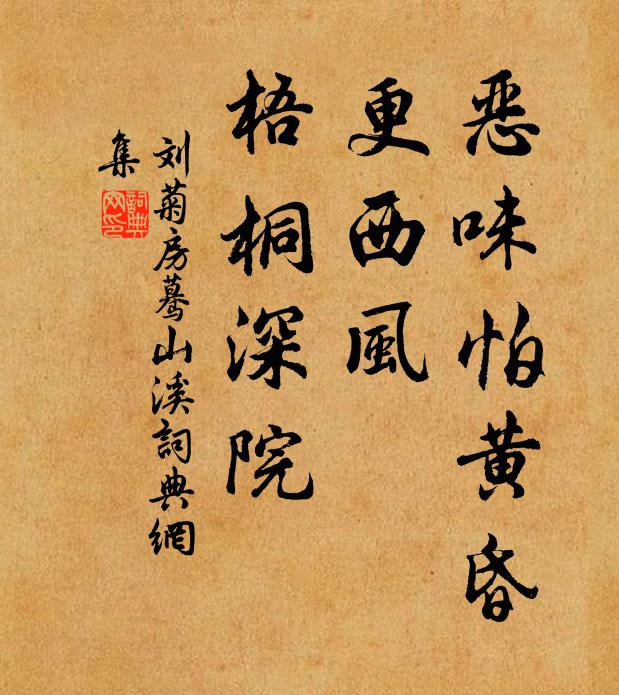 恶味怕黄昏
更西風
梧桐深院
刘菊房蓦山溪詞典網
集
詞典网印